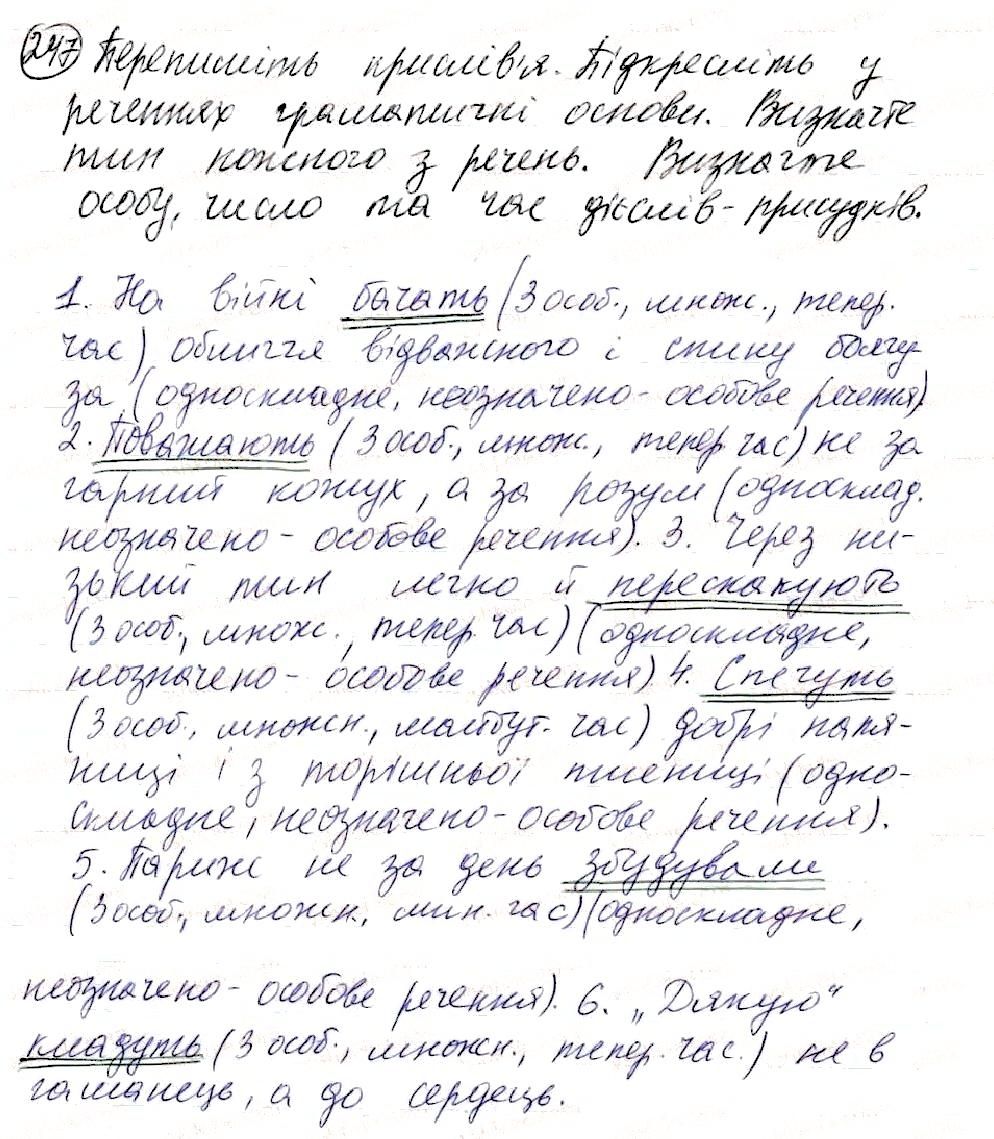 247 Перепишіть прислів'я. Підкресліть у
реченнях граматичні основи. Визначте
тип кожного з речень. Визначте
особу, число та час дієслів-присудків.
1. На війні бачать (3 особ., множ., тепер.
час) обличчя відважного і спину боягу-
за (односкладне, неозначено-особове речення)
2. Поважають (3 особ., множ., тепер. час) не за
гарний кожух, а за розум (односклад.
неозначено-особове речення). 3. Через ни-
зький тин легко й перескакують
(3 особ., множ., тепер. час) (односкладне,
неозначено-особове речення) 4. Спечуть
(3 особ., множн., майбут. час) добрі паля-
ниці і з торішньої пшениці (одно-
складне, неозначено-особове речення).
5. Париж не за день збудували
(3 особ., множн., мин. час) (односкладне,
неозначено-особове речення). 6. „Дякую"
кладуть (3 особ., множн., тепер. час.) не в
гаманець, а до сердець.